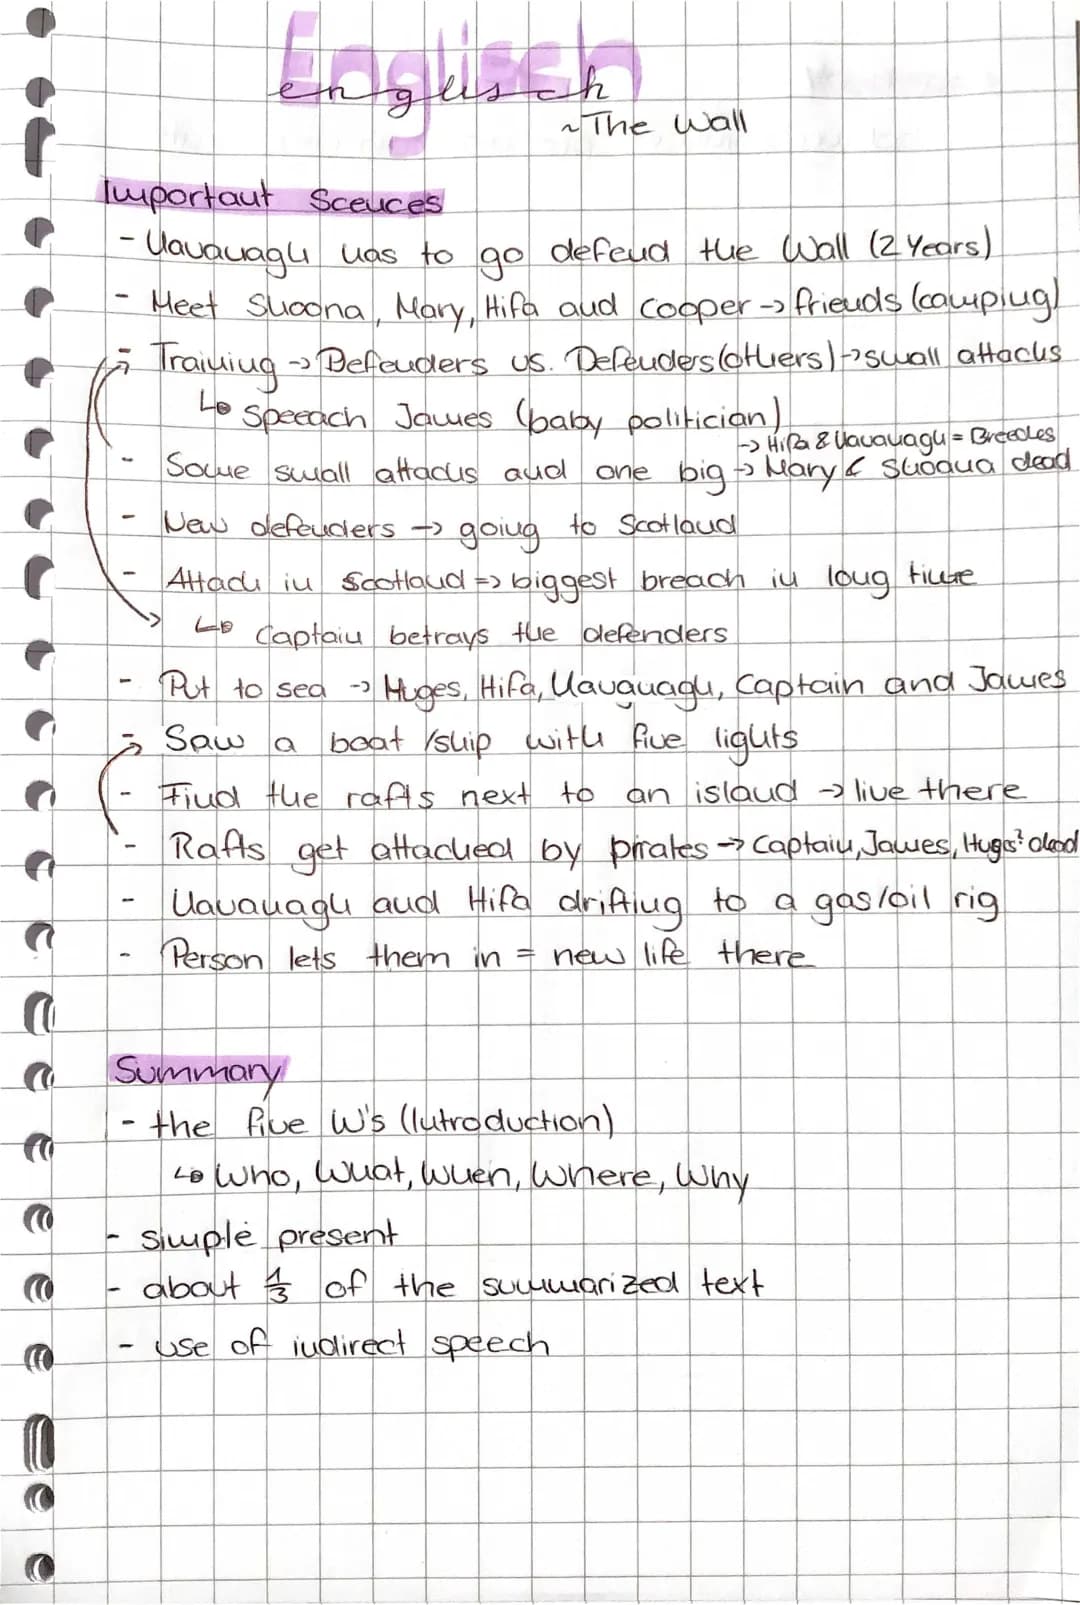 Englisch
englisch
~The Wall
Important Scences
- Kavanagh has to go defend the Wall (2 Years)
- Meet Shoona, Mary, Hifa and Cooper -> friends (camping)
- Training -> Defenders vs. Defenders (others) -> small attacks
↳ Speeach James (baby politician)
-> Hifa & Kavanagh = Breedes
- Some small attacks and one big -> Mary & Shoona dead
- New defenders -> going to Scotland
- Attack in Scotland => biggest breach in long time
↳ Captain betrays the defenders
- Put to sea -> Huges, Hifa, Kavanagh, Captain and James
- Saw a boat/ship with five lights
- Find the rafts next to an island -> live there
- Rafts get attacked by pirates -> Captain, James, Huges? dead
- Kavanagh and Hifa drifting to a gas/oil rig
- Person lets them in = new life there
Summary
- the five W's (Introduction)
↳ Who, What, When, Where, Why
- simple present
- about 1/3 of the summarized text
- use of indirect speech